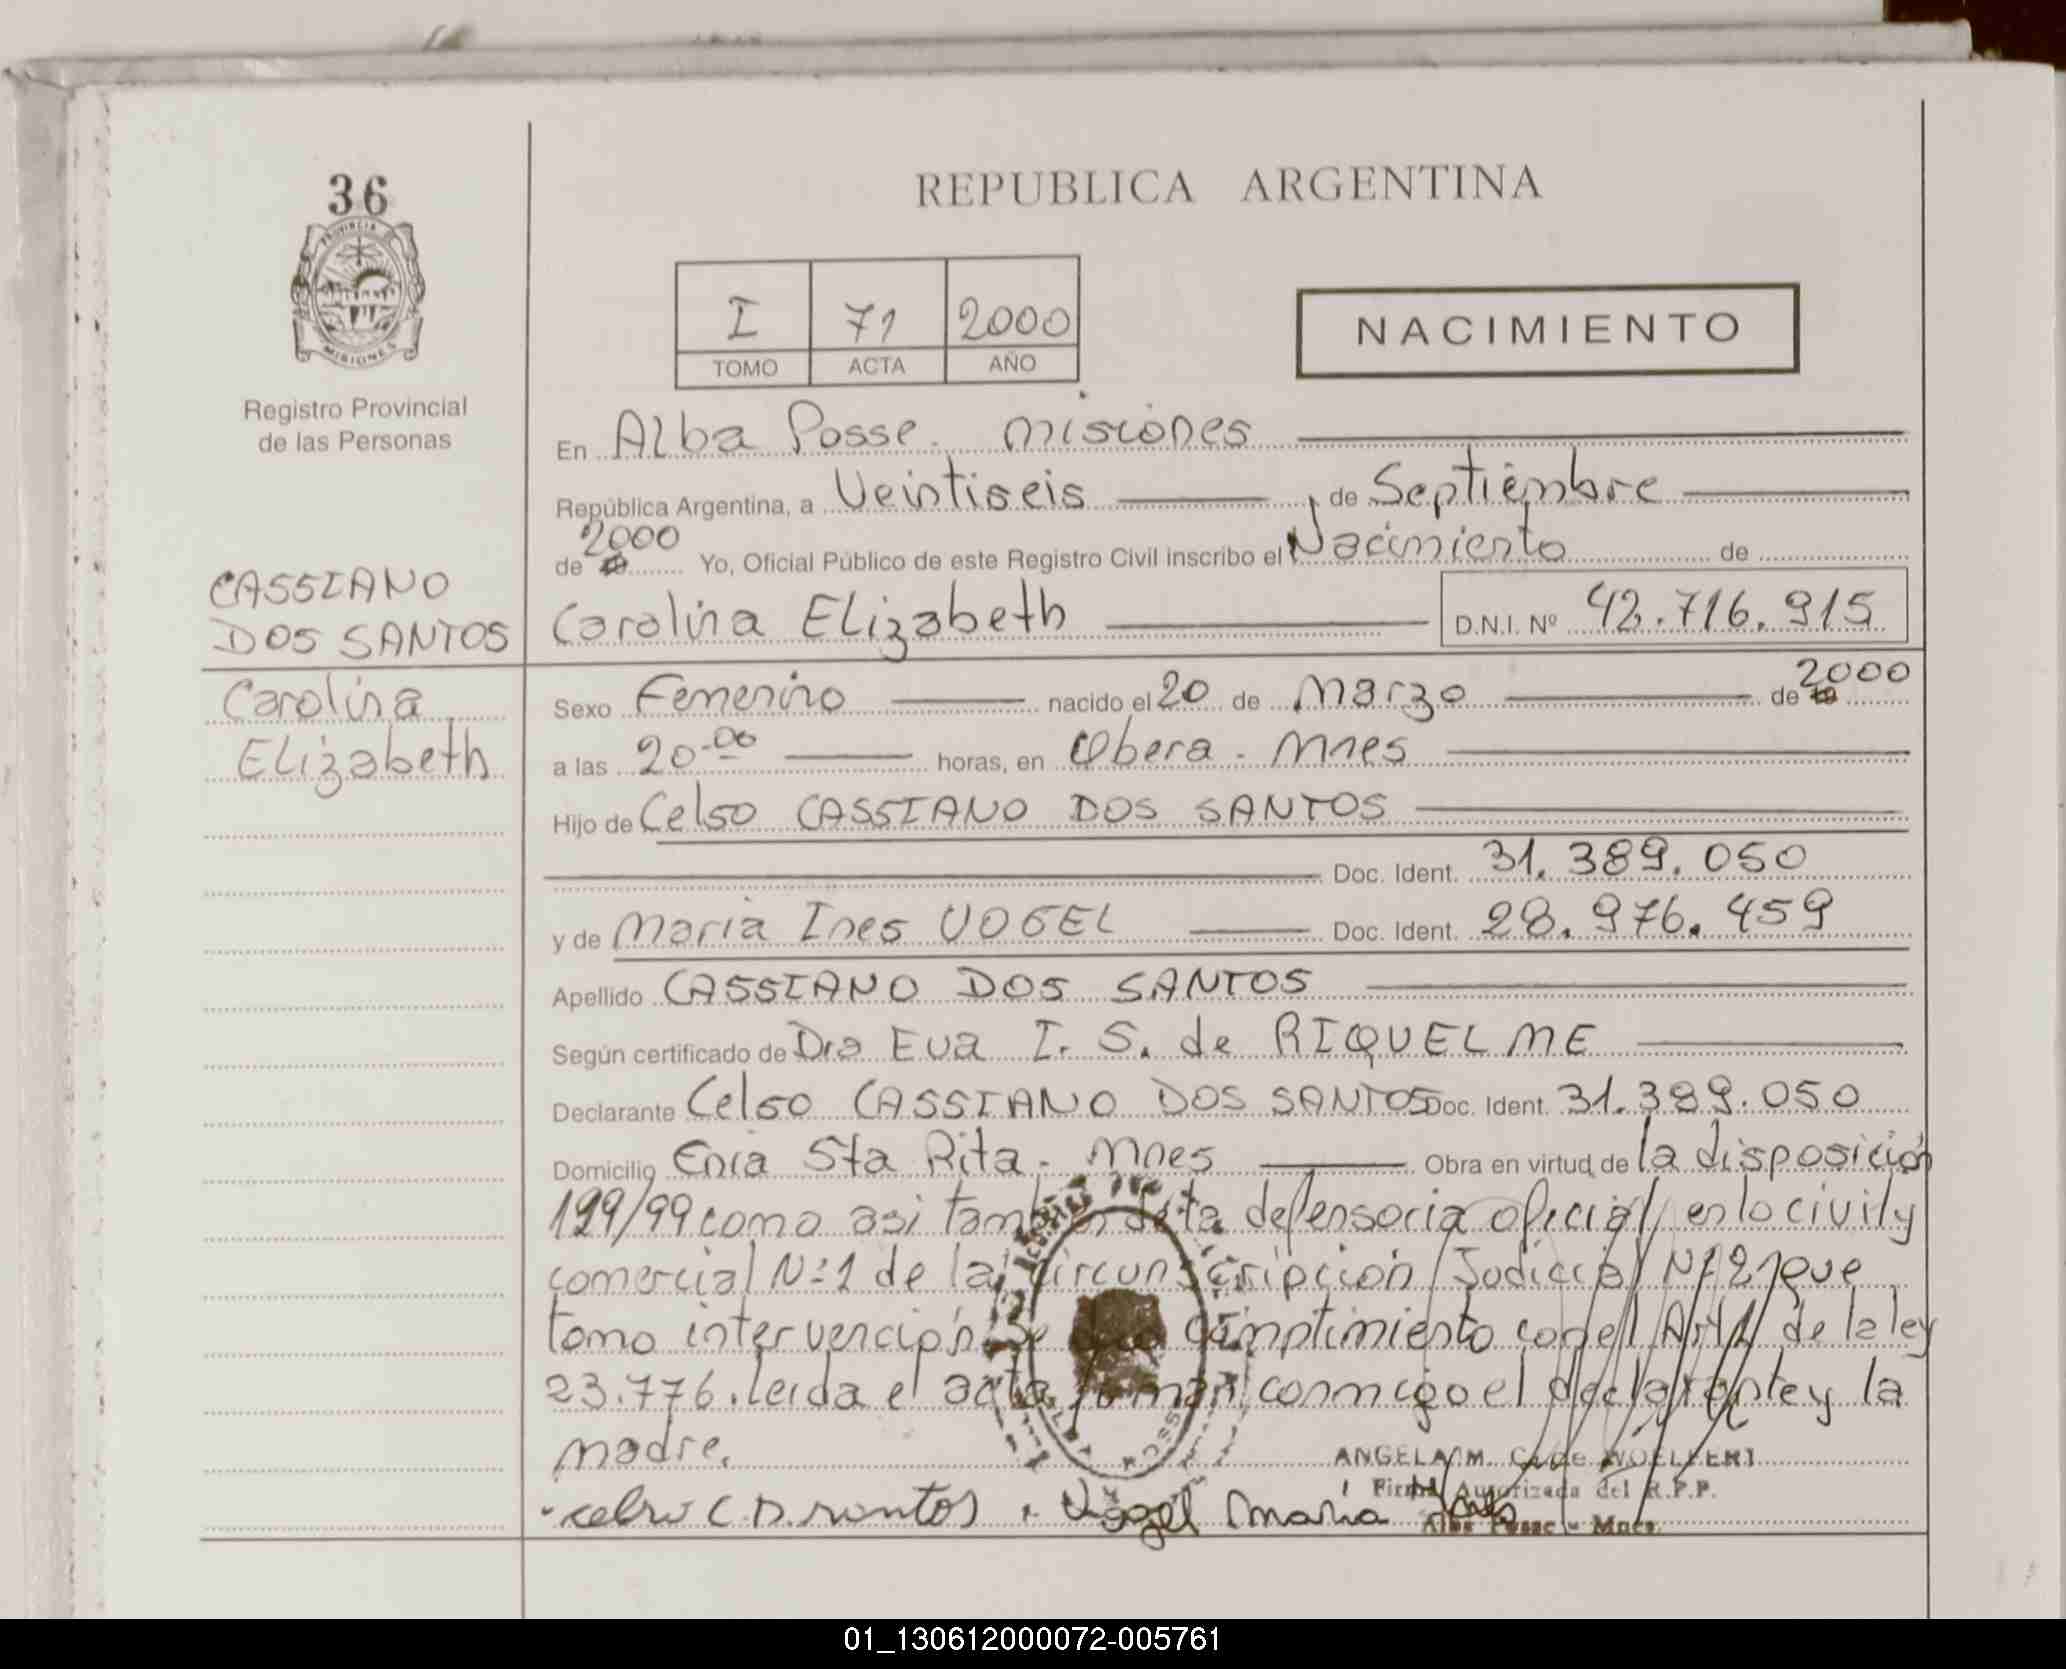 36
PROVINCIA
MISIONES
Registro Provincial
de las Personas
REPUBLICA ARGENTINA
I 71 2000
TOMO ACTA AÑO
NACIMIENTO
En Alba Posse. misiones
República Argentina, a Veintiseis de Septiembre
de 2000 Yo, Oficial Público de este Registro Civil inscribo el Nacimiento de
CASSIANO
DOS SANTOS
Carolina Elizabeth D.N.I. Nº 42.716.915
Carolina
Elizabeth
Sexo Femenino nacido el 20 de Marzo de 2000
a las 20.00 horas, en Obera - Mnes
Hijo de Celso CASSIANO DOS SANTOS
Doc. Ident. 31.389.050
y de Maria Ines VOGEL Doc. Ident. 28.976.459
Apellido CASSIANO DOS SANTOS
Según certificado de Dra Eva I. S. de RIQUELME
Declarante Celso CASSIANO DOS SANTOS Doc. Ident. 31.389.050
Domicilio Cnia Sta Rita - Mnes Obra en virtud de la disposición
199/99 como asi también de la defensoria oficial en lo civil y
comercial Nº1 de la circunscripción Judicial Nº 2 que
tomo intervención. Se dio cumplimiento con el Art 1 de la ley
23.776. leida el acta firman conmigo el declarante y la
madre.
ANGELA M. C. de WOELFERT
Firma Autorizada del R.P.P.
Alba Posse - Mnes.
celso C.D. santos Vogel maria Ines
01_130612000072-005761